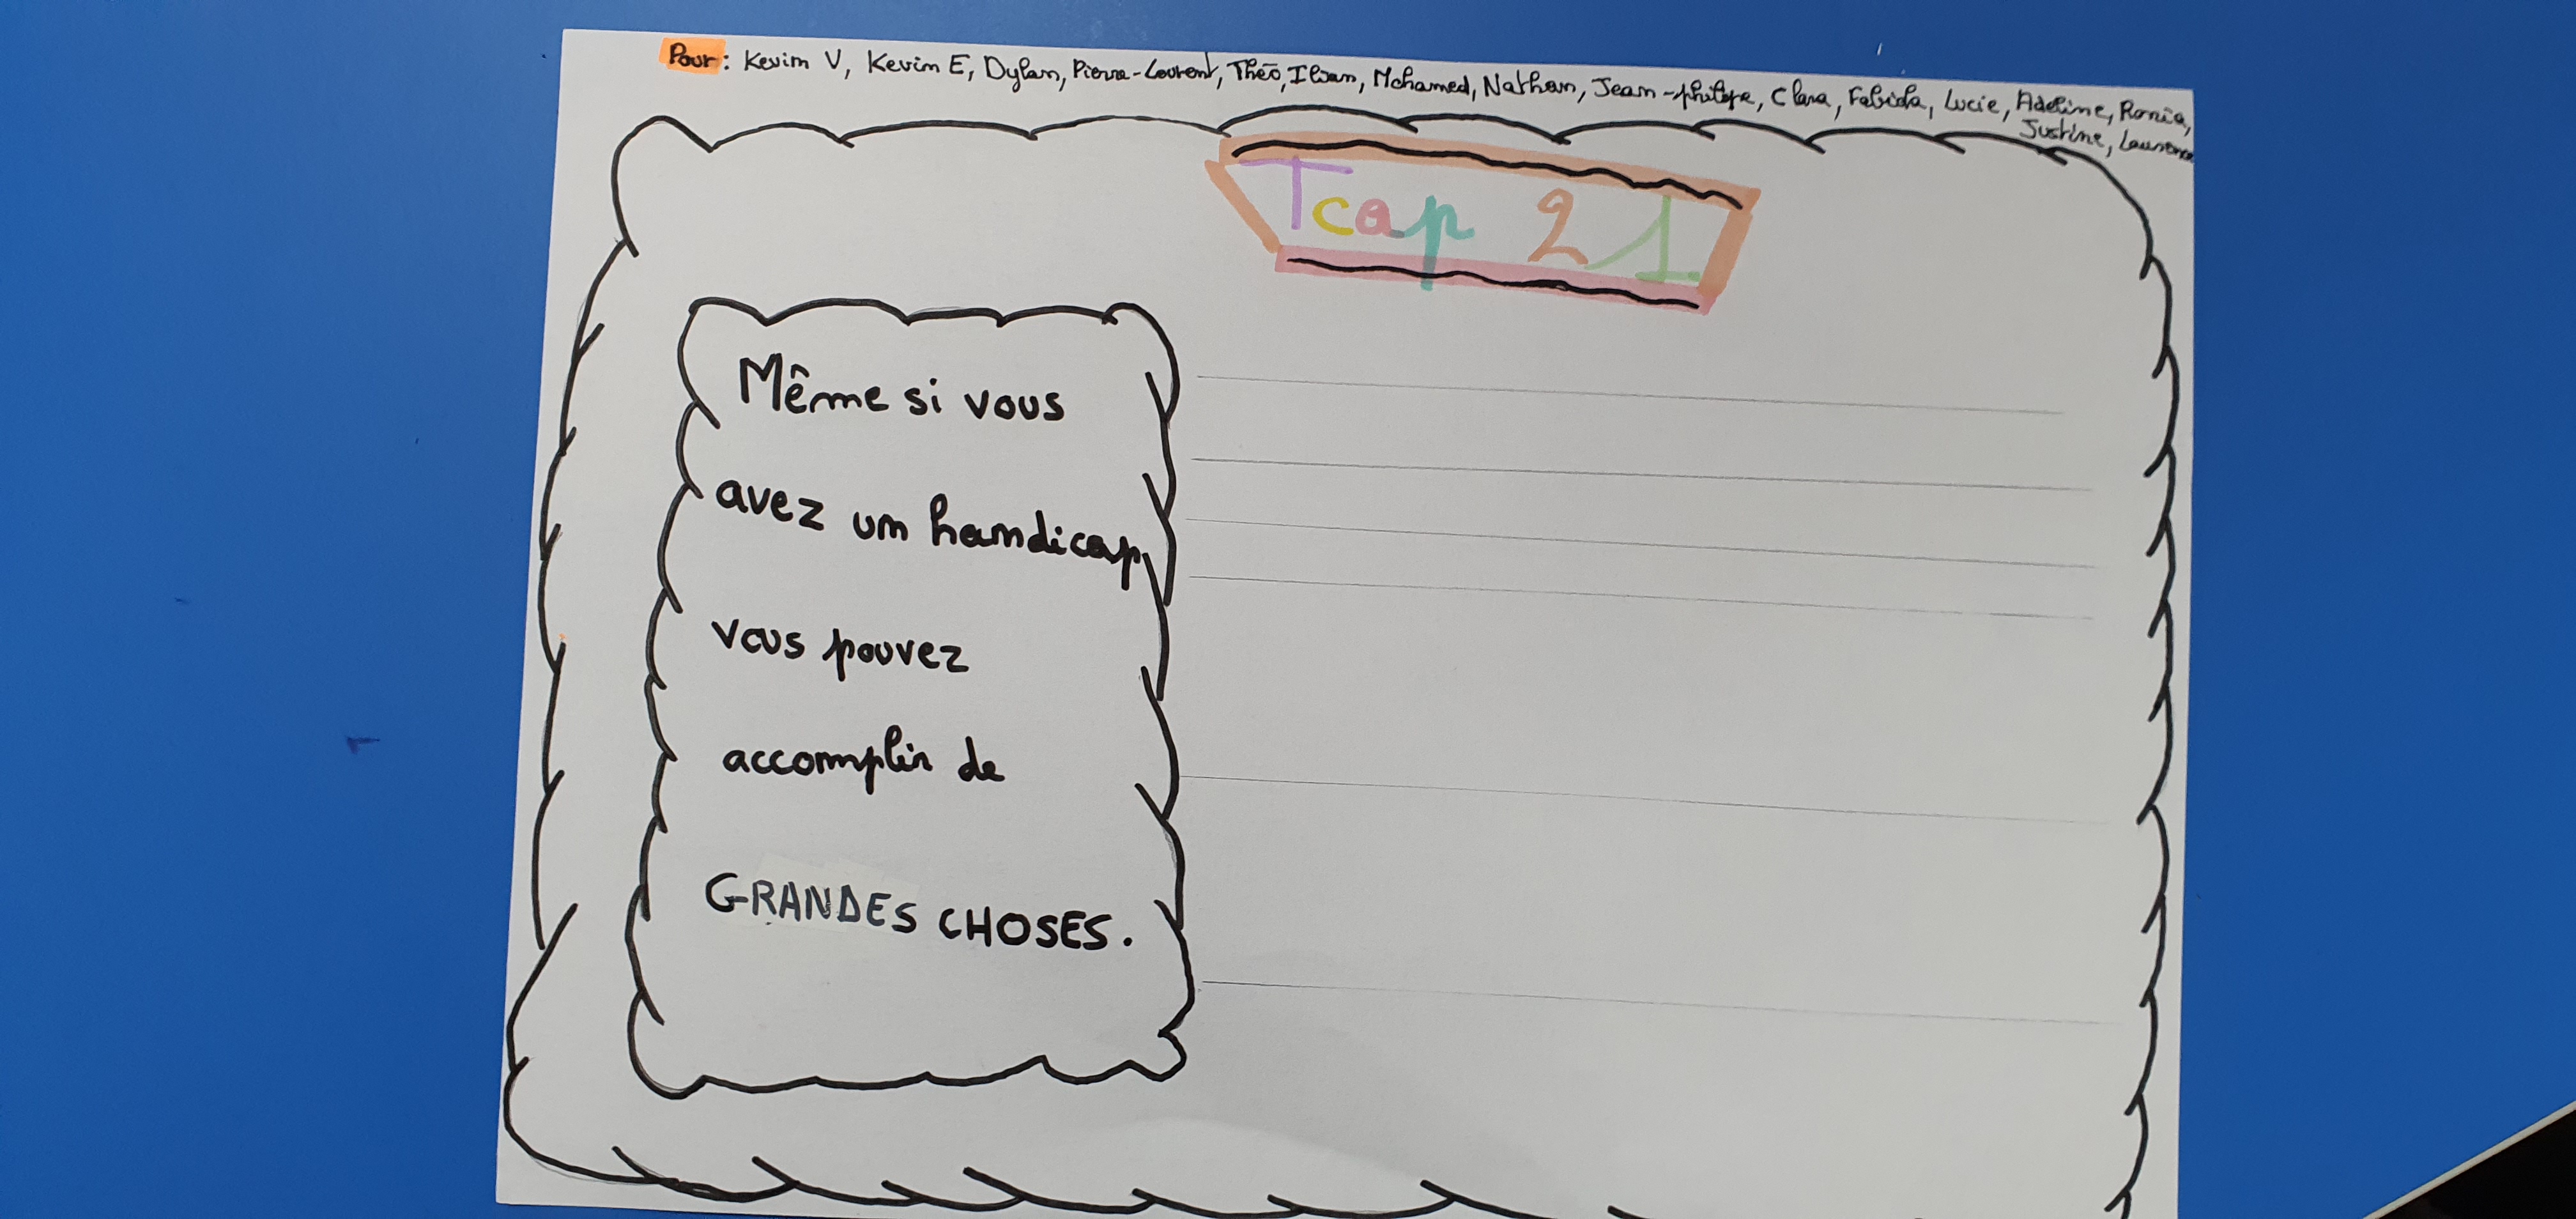 Pour : Kevin V, Kevin E, Dylan, Pierre-Laurent, Théo, Ilван, Mohamed, Nathan, Jean-philipe, Clara, Fabiola, Lucie, Adeline, Rania,
Justine, Laurence
Tcap 21
Même si vous
avez un handicap,
vous pouvez
accomplir de
GRANDES CHOSES.